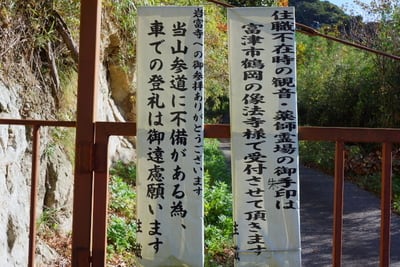 住職不在時の観音・薬師霊場の御手印は
富津市鶴岡の像法寺様で受付させて頂きます
朱
当寺への御参拝ありがとうございます
当山参道に不備がある為、
車での登礼は御遠慮願います